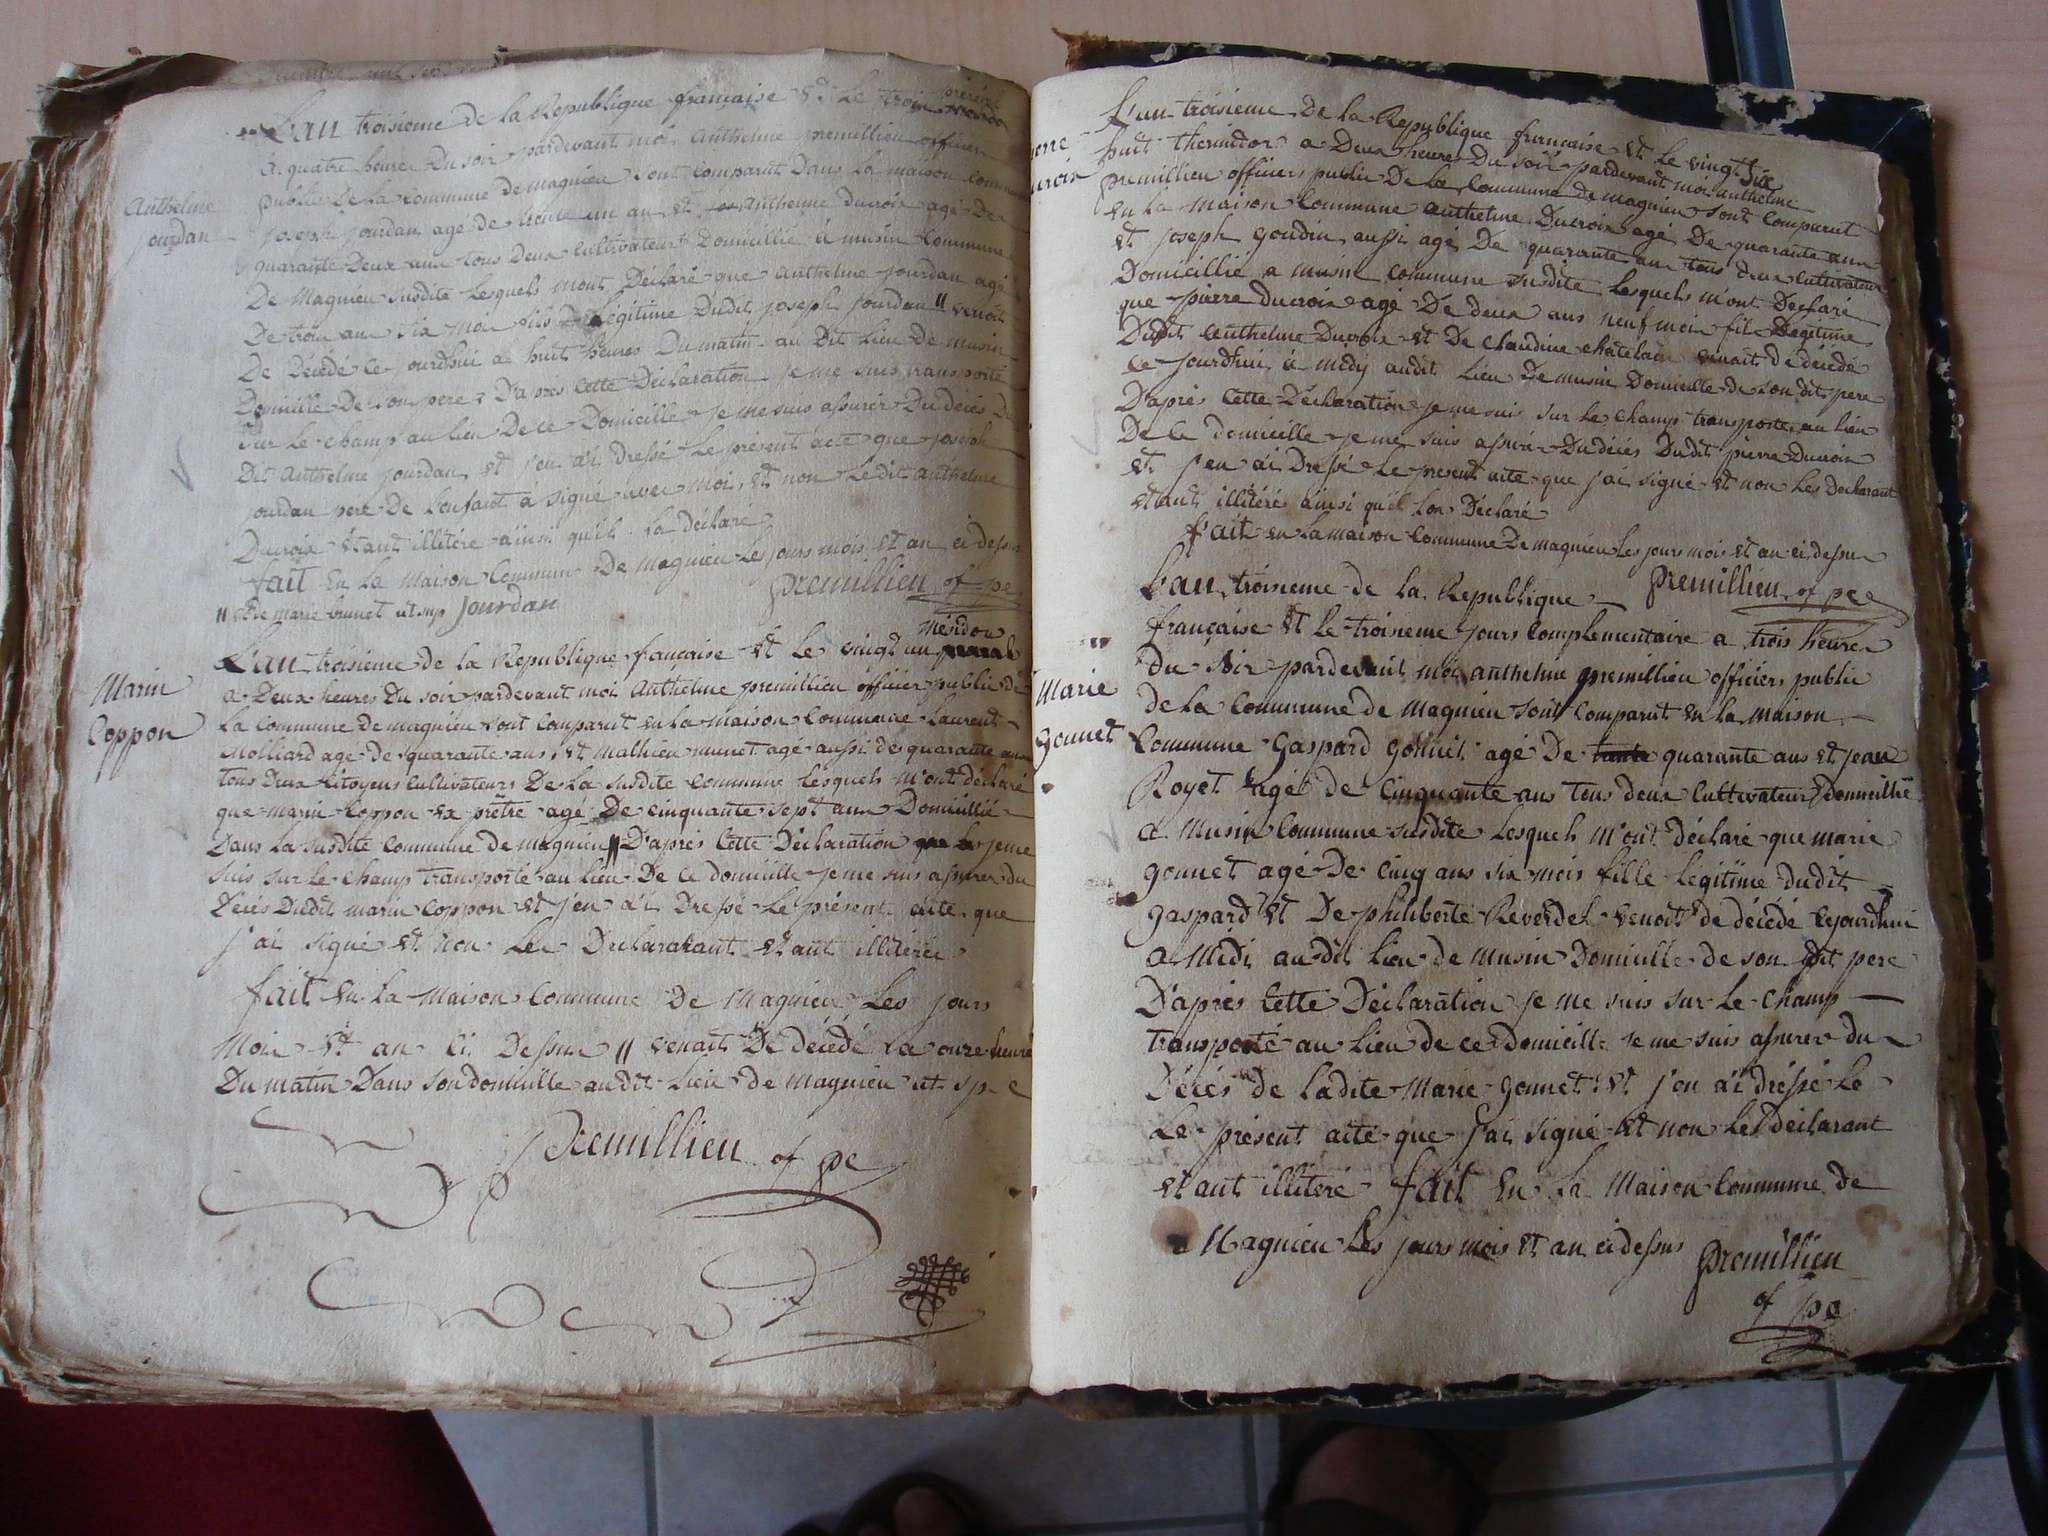 L'an troisieme de la Republique française et le trois prerial
a quatre heures du soir pardevant moi Anthelme premillieu officier
public de la Commune de magnieu sont comparut Dans la maison commune
Anthelme
jourdan
joseph jourdan agé de trente un an et Anthelme ducroix agé De
quarante Deux ans tous Deux cultivateurs Domicillié à musin Commune
De Magnieu susdite Lesquels mont Déclaré que Anthelme jourdan agé
De trois ans six mois fils Légitime Dudit joseph jourdan // venoit
De Décédé ce jourdhui a huit heures Du matin au Dit Lieu de musin
Domicille De son pere, D'apres Cette Déclaration je me suis transporté
sur Le champ au lieu De ce Domicille je me suis assurér Du décés Du
Dit Anthelme jourdan et j'en ai Dressé Le présent acte que joseph
jourdan pere De l'enfant à signé avec moi, et non Le Dit anthelme
Ducroix etant illitére ainsi qu'il la déclaré
fait En La Maison Commune De magnieu Les jours mois et an ci dessus
premillieu of pe
// et De marie brunet ut sup jourdan
Marin
Coppon
L'an troisieme de la Republique française et Le vingt un mésidor
a Deux heures Du soir pardevant moi Anthelme premillieu officier public de
la Commune De magnieu sont Comparut en la maison Commune Laurent
Molliard agé de quarante ans, et mathieu munet agé aussi de quarante ans
tous Deux Citoyens Cultivateurs De la susdite Commune Lesquels m'ont déclaré
que marin Coppon ex prêtre agé De cinquante sept ans Domicillié
Dans la susdite Commune de magnieu // D'aprés Cette Déclaration je me
suis sur le champ transporté au lieu De ce domicille je me suis assurer du
Décés Dudit marin Coppon et j'en ai Dressé Le présent acte que
j'ai signé et non Les Declaratant etant illitérée
fait en la Maison Commune De Magnieu Les jours
Mois et an Ci Dessus // venait De décédé La onze heure
Du matin Dans son domicille audit Lieu de magnieu ut sp e
Premillieu of pe
L'an troisieme De la Republique française et le vingt
huit thermidor a Deux heures Du soir pardevant moi anthelme
premillieu officiers public De La Commune de magnieu sont Comparut
en la maison Commune Anthelme Ducroix agé De quarante ans
et joseph goudin aussi agé De quarante ans tous deux cultivateurs
Domicillié a musin commune susdite Lesquels m'ont Declaré
que pierre ducroix agé De deux ans neuf mois fils Légitime
Dudit Anthelme Ducroix et De Claudine chatelain venait de décédé
ce jourdhui à midy audit Lieu De musin Domicille de son dit pere
D'aprés Cette Déclaration je me suis sur Le champ transporté au lieu
De Ce domicille je me suis assuré Du décés Dudit pierre Ducroix
et j'en ai Dressé Le present acte que j'ai signé et non Les Declarant
etant illitéré ainsi qu'il Lon Déclaré
fait en La maison Commune De magnieu Les jours mois et an ci dessus
premillieu of pe
L'an troisieme de la Republique
française et Le troisieme jours complementaire a trois heures
du soir pardevant moi anthelme premillieu officiers public
de la Commune de magnieu sont comparut en la maison
Marie
gonnet
Commune Gaspard gonnet agé De quarante ans et jean
Royet agé de Cinquante ans tous deux Cultivateurs domicillié
a Musin Commune susdite Lesquels m'ont Déclaré que marie
gonnet agé De Cinq ans six mois fille Légitime dudit
gaspard et De philiberte Reverdel venoit de décédé ce jourdhui
a Midi audit Lieu de musin Domicille de son dit pere
D'aprés Cette Déclaration je me suis sur Le champ
transporté au Lieu de ce domicille je me suis assurer du
Décés de Ladite Marie gonnet et j'en ai dréssé Le
Le présent acte que j'ai signé et non Les déclarant
etant illitéré fait En La Maison Commune de
Magnieu Les jours mois et an ci dessus premillieu
of pe